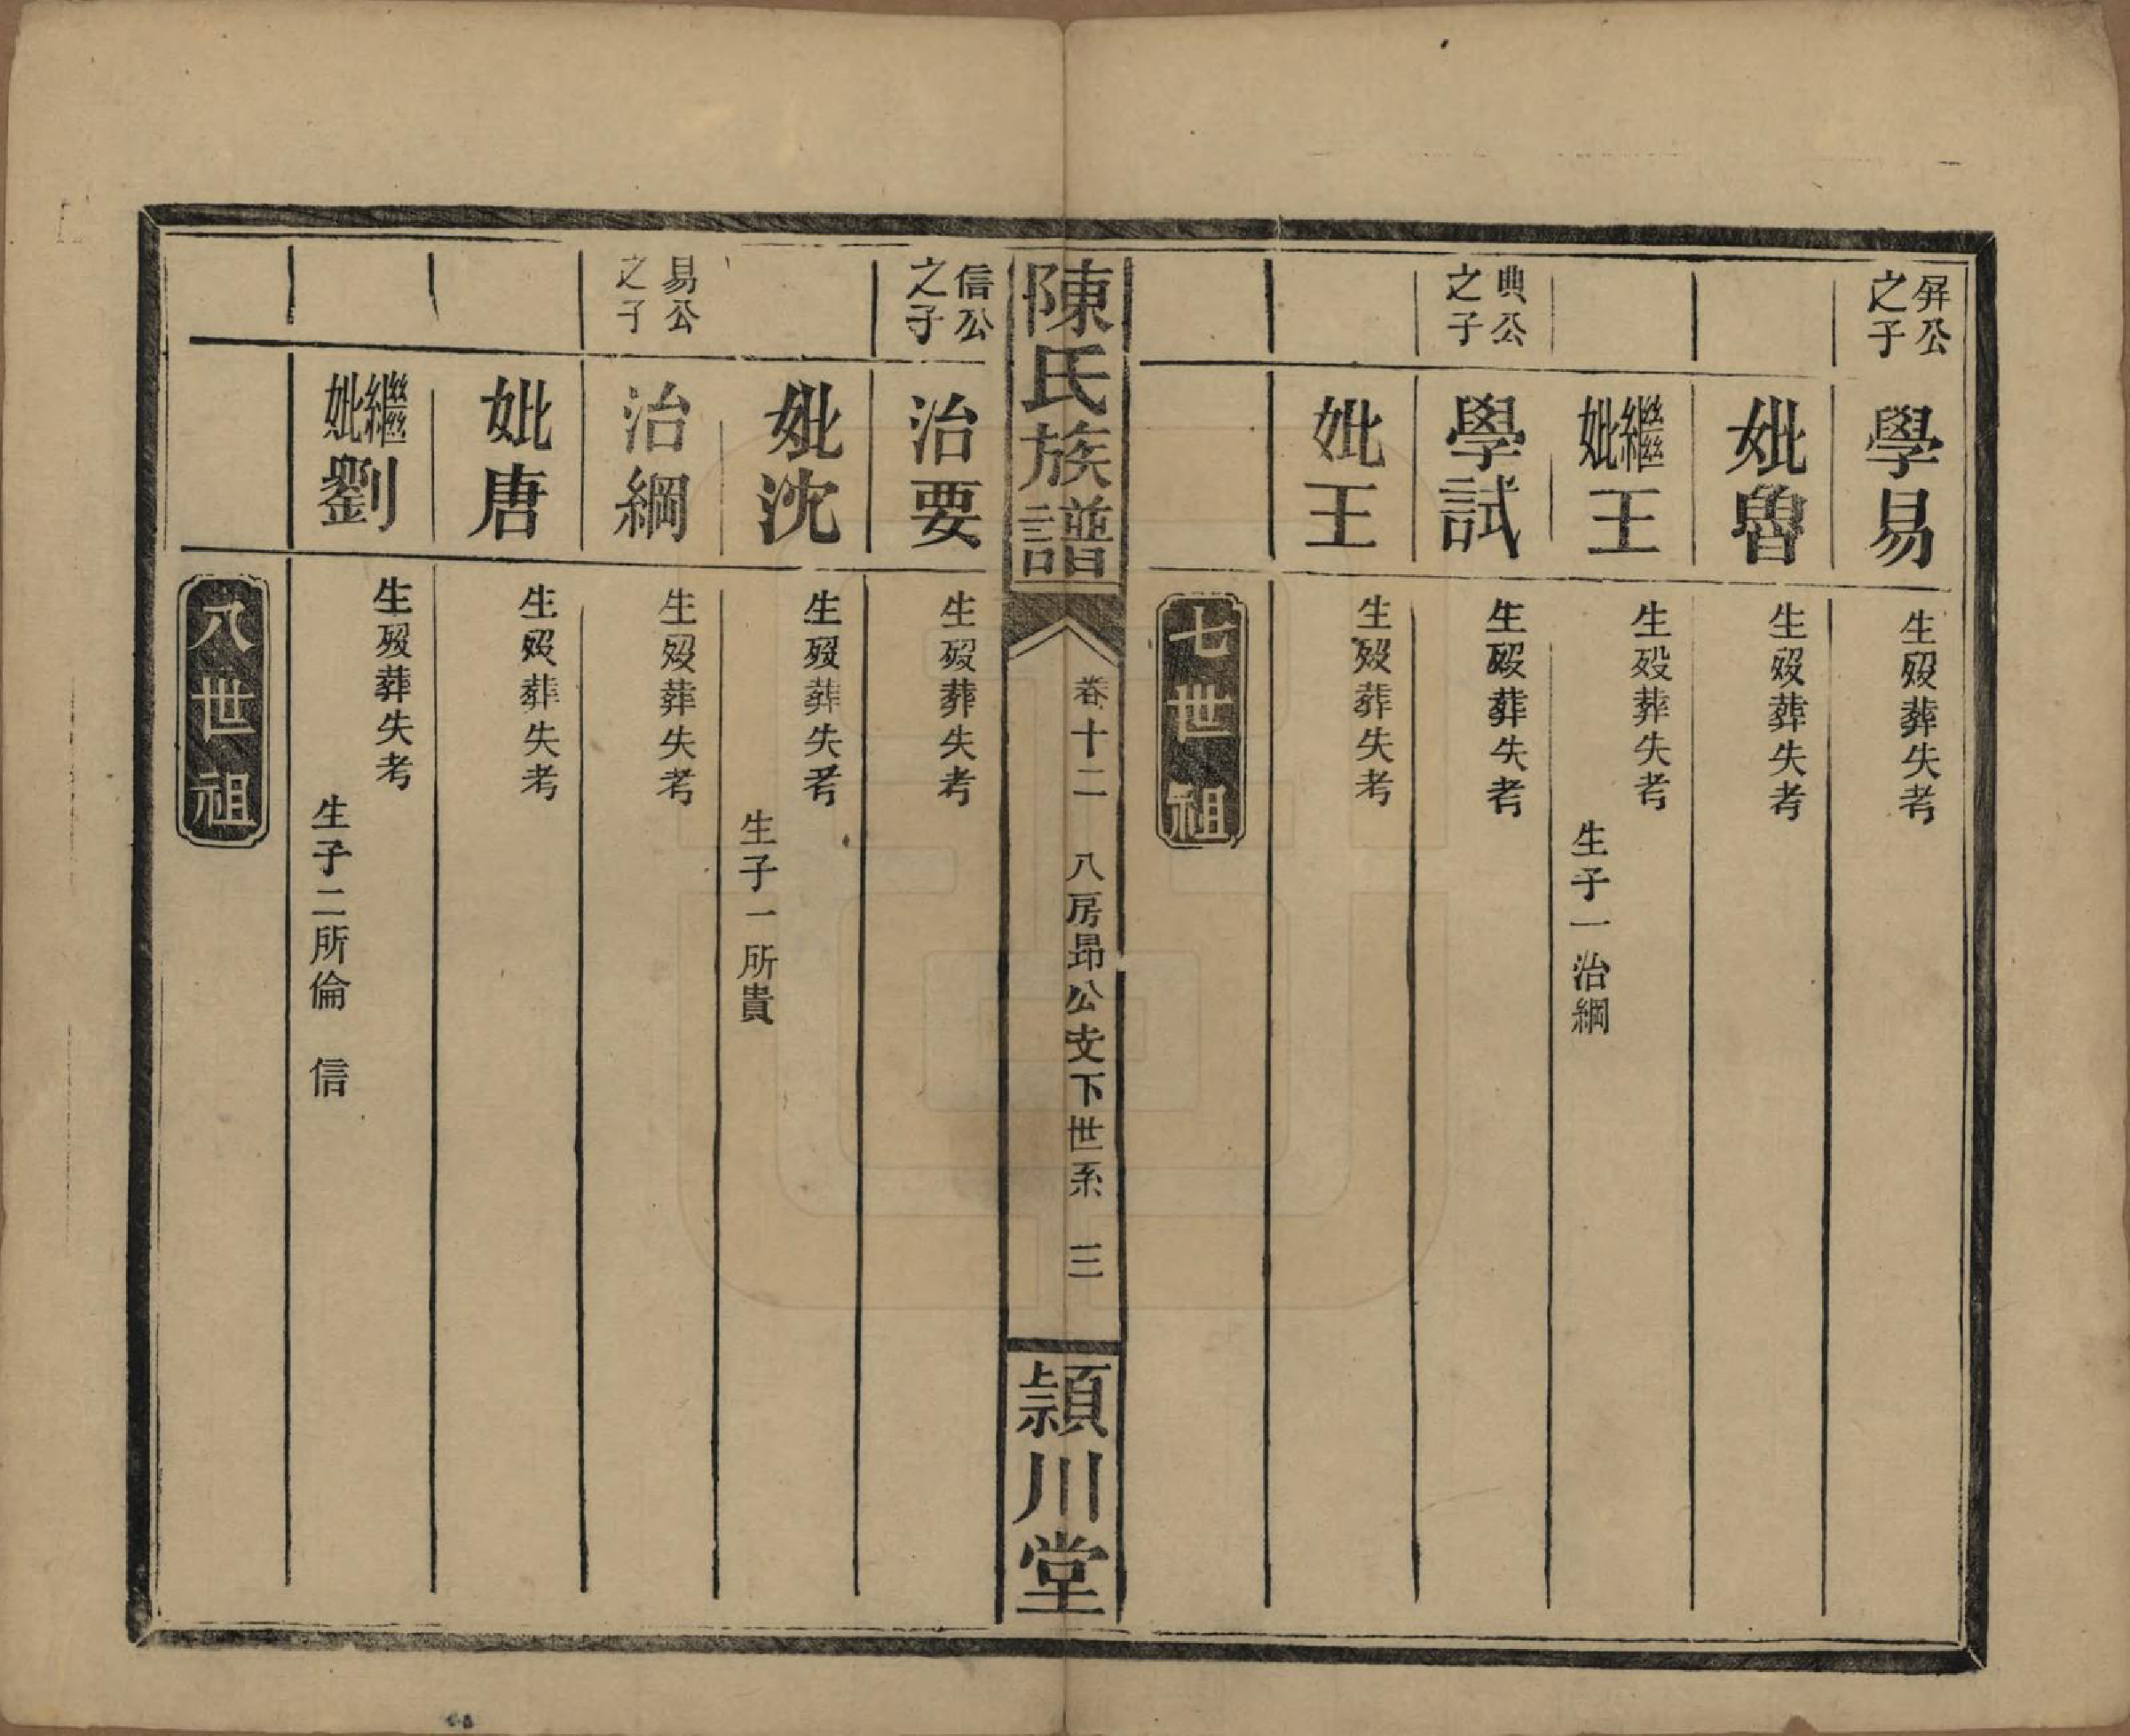 屏公之子
學易
生殁葬失考
妣魯
生殁葬失考
繼妣王
生殁葬失考
生子一治綱
典公之子
學試
生殁葬失考
妣王
生殁葬失考
七世祖
陳氏族譜
卷十二 八房昻公支下世系 三
頴川堂
信公之子
治要
生殁葬失考
妣沈
生殁葬失考
生子一所貴
易公之子
治綱
生殁葬失考
妣唐
生殁葬失考
繼妣劉
生殁葬失考
生子二所倫 信
八世祖